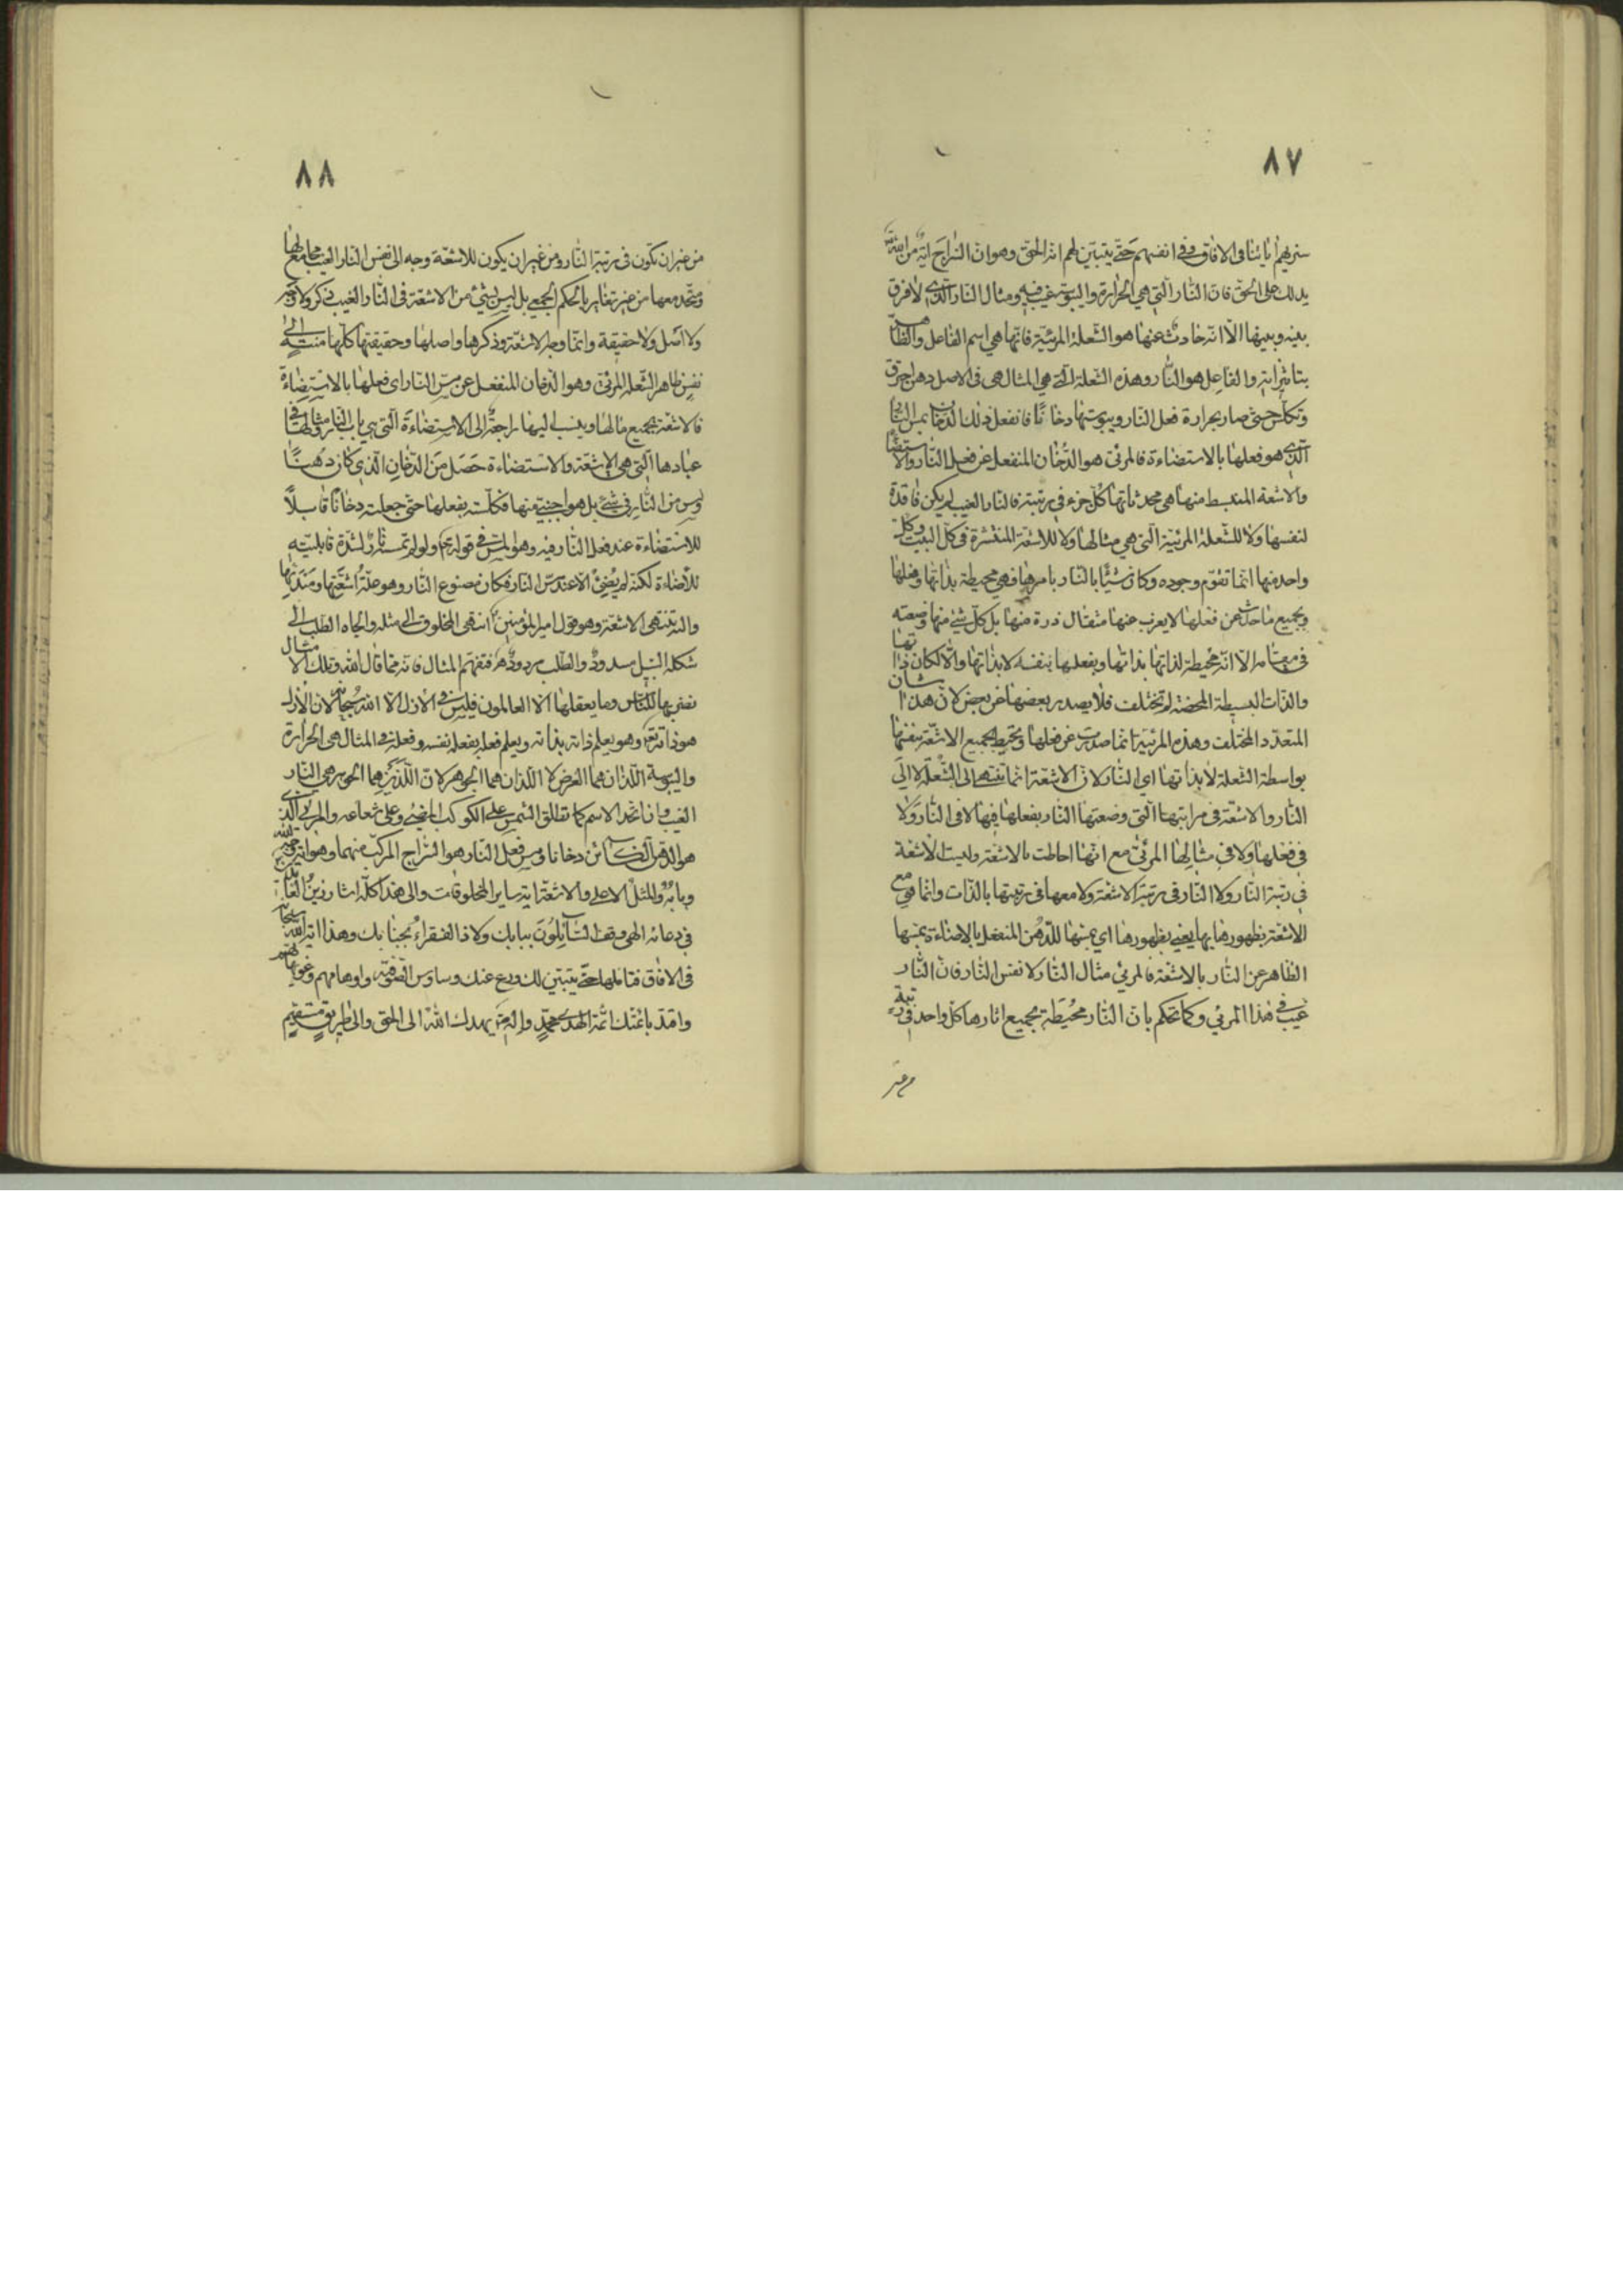 ٨٧
سنريهم اياتنا فى الافاق وفى انفسهم حتى يتبين لهم انه الحق وهو ان السراج اية من الله
يدلك على الحق فان النار التى هى الحرارة واليبوسة غيب فيه ومثال النار الذى لا فرق
بينه وبينها الا انه حادث عنها هو الشعلة المرئية فانها هى اسم الفاعل والظاهر
بتاثيراته والفاعل هو النار وهذه الشعلة التى هى المثال هى فى الاصل دهن احترق
وتكلس حتى صار بحرارة فعل النار ويبوستها دخانًا فانفعل ذلك الدخان بمس النار
الذى هو فعلها بالاستضاءة فالمرئى هو الدخان المنفعل عن فعل النار والاستضاءة
والاشعة المنبسط منها هى محدثاتها كل جزء فى رتبته فالنار الغيب لم يكن فاقدة
لنفسها ولا للشعلة المرئية التى هى مثالها ولا للاشعة المنتشرة فى كل البيت وكل
واحد منها انما تقوم وجوده وكان شيئًا بالنار بامرها فهى محيطة بذاتها وفعلها
وبجميع ما حدث عن فعلها لا يعزب عنها مثقال ذرة منها بل كل شئ منها وضعته
فى مقامه الا انه محيطة لذاتها بذاتها وبفعلها بنفسه لا بذاتها والا لكان ذاتها
والذات البسيطة المحضة لم تختلف فلا يصدر بعضها عن بعض لان هذا شان
المتعدد المختلف وهذه المرئية انما صدرت عن فعلها ويحيط بجميع الاشعة بنفسها
بواسطة الشعلة لا بذاتها اى النار لان الاشعة انما تنتهى الى الشعلة لا الى
النار والاشعة فى مراتبها التى وضعتها النار بفعلها فيها لا فى النار ولا
فى فعلها ولا فى مثالها المرئى مع انها احاطت بالاشعة وليست الاشعة
فى رتبة النار ولا النار فى رتبة الاشعة ولا معها فى رتبتها بالذات وانما هى مع
الاشعة بظهورها بها يعنى بظهورها اى بمسها للدهن المنفعل بالاضاءة بمسها
الظاهر عن النار بالاشعة فالمرئى مثال النار لا نفس النار فان النار
غيب فى هذا المرئى وكما تحكم بان النار محيطة بجميع اثارها كل واحد فى رتبة
من غير
٨٨
من غير ان تكون فى رتبة النار ومن غير ان يكون للاشعة وجه الى نفس النار الغيب مجامع لها
ومتحد معها من غير تغاير بالحكم الجمعى بل ليس لشئ من الاشعة فى النار الغيب ذكر ولا وجه
ولا اصل ولا حقيقة وانما وجه الاشعة وذكرها واصلها وحقيقتها كلها منتهية الى
نفس ظاهر الشعلة المرئى وهو الدخان المنفعل عن مس النار اى فعلها بالاستضاءة
فالاشعة بجميع مالها وينسب اليها راجعة الى الاستضاءة التى هى باب النار ومثالها فى
عبادها التى هى الاشعة والاستضاءة حصل من الدخان الذى كان دهنًا
ليس من النار فى شئ بل هو اجنبى عنها فكلسته بفعلها حتى جعلته دخانًا قابلاً
للاستضاءة عند فعل النار فيه وهو المس فى قوله تعالى ولو لم تمسسه نار لشدة قابليته
للاضاءة لكنه لم يضئ الا عند مس النار فكان مصنوع النار وهو علة اشعتها ومنذ
واليه تنتهى الاشعة وهو قول امير المؤمنين انتهى المخلوق الى مثله والجاه الطلب الى
شكله السبيل مسدود والطلب مردود فتفهم المثال فانه مما قال الله وتلك الامثال
نضربها للناس وما يعقلها الا العالمون فليس فى الازل الا الله سبحانه لان الازل
هو ذاته تعالى وهو يعلم ذاته بذاته ويعلم فعله بفعله نفسه وفعله فى المثال هى الحرارة
واليبوسة اللذان هما العرض لا اللذان هما الجوهر لان اللذين هما الجوهر هى النار
الغيب وان اتحد الاسم كما تطلق الشمس على الكوكب المضئ وعلى شعاعه والمرئى الذى
هو الدهن الكائن دخانا ومس فعل النار هو السراج المركب منهما وهو اية
وبابه والمثل الاعلى والاشعة اية ساير المخلوقات والى هذا كله اشار زين العابدين
فى دعائه الهى وقف السائلون ببابك ولاذ الفقراء بجنابك وهذا اية الله سبحانه
فى الافاق فتاملها حتى يتبين لك ودع عنك وساوس الصوفية واوهامهم
واقتد بائمتك ائمة الهدى محمد واله يهدك الله الى الحق والى طريق مستقيم